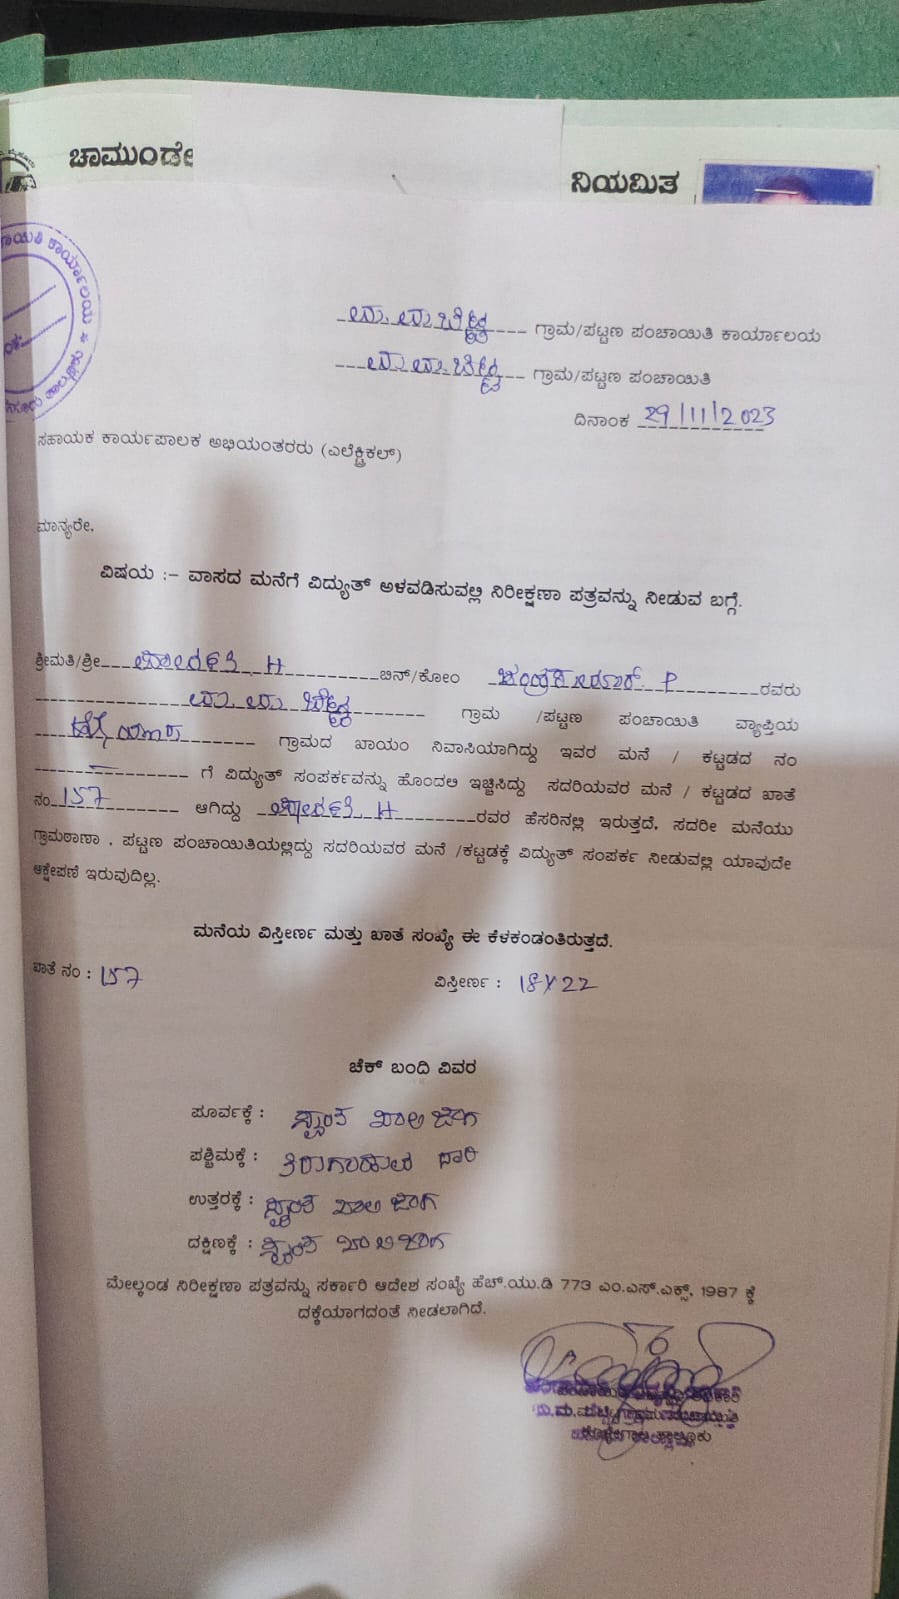 ಚಾಮುಂಡೇ
ನಿಯಮಿತ
ಗ್ರಾಮ/ಪಟ್ಟಣ ಪಂಚಾಯಿತಿ ಕಾರ್ಯಾಲಯ
ಗ್ರಾಮ/ಪಟ್ಟಣ ಪಂಚಾಯಿತಿ
ದಿನಾಂಕ 29/11/2023
ಸಹಾಯಕ ಕಾರ್ಯಪಾಲಕ ಅಭಿಯಂತರರು (ಎಲೆಕ್ಟ್ರಿಕಲ್)
ಮಾನ್ಯರೇ,
ವಿಷಯ :– ವಾಸದ ಮನೆಗೆ ವಿದ್ಯುತ್ ಅಳವಡಿಸುವಲ್ಲಿ ನಿರೀಕ್ಷಣಾ ಪತ್ರವನ್ನು ನೀಡುವ ಬಗ್ಗೆ.
ಶ್ರೀಮತಿ/ಶ್ರೀ H ಬಿನ್/ಕೋಂ P ರವರು
ಗ್ರಾಮ /ಪಟ್ಟಣ ಪಂಚಾಯಿತಿ ವ್ಯಾಪ್ತಿಯ
ಗ್ರಾಮದ ಖಾಯಂ ನಿವಾಸಿಯಾಗಿದ್ದು ಇವರ ಮನೆ / ಕಟ್ಟಡದ ನಂ
ಗೆ ವಿದ್ಯುತ್ ಸಂಪರ್ಕವನ್ನು ಹೊಂದಲಿ ಇಚ್ಚಿಸಿದ್ದು ಸದರಿಯವರ ಮನೆ / ಕಟ್ಟಡದ ಖಾತೆ
ನಂ 157 ಆಗಿದ್ದು H ರವರ ಹೆಸರಿನಲ್ಲಿ ಇರುತ್ತದೆ. ಸದರೀ ಮನೆಯು
ಗ್ರಾಮಠಾಣಾ . ಪಟ್ಟಣ ಪಂಚಾಯಿತಿಯಲ್ಲಿದ್ದು ಸದರಿಯವರ ಮನೆ /ಕಟ್ಟಡಕ್ಕೆ ವಿದ್ಯುತ್ ಸಂಪರ್ಕ ನೀಡುವಲ್ಲಿ ಯಾವುದೇ
ಆಕ್ಷೇಪಣೆ ಇರುವುದಿಲ್ಲ.
ಮನೆಯ ವಿಸ್ತೀರ್ಣ ಮತ್ತು ಖಾತೆ ಸಂಖ್ಯೆ ಈ ಕೆಳಕಂಡಂತಿರುತ್ತದೆ.
ಖಾತೆ ನಂ : 157 ವಿಸ್ತೀರ್ಣ : 18X22
ಚೆಕ್ ಬಂದಿ ವಿವರ
ಪೂರ್ವಕ್ಕೆ : ಸ್ವಂತ ಖಾಲಿ ಜಾಗ
ಪಶ್ಚಿಮಕ್ಕೆ : ತಿರುಗಾಡುವ ದಾರಿ
ಉತ್ತರಕ್ಕೆ : ಸ್ವಂತ ಖಾಲಿ ಜಾಗ
ದಕ್ಷಿಣಕ್ಕೆ : ಸ್ವಂತ ಖಾಲಿ ಜಾಗ
ಮೇಲ್ಕಂಡ ನಿರೀಕ್ಷಣಾ ಪತ್ರವನ್ನು ಸರ್ಕಾರಿ ಆದೇಶ ಸಂಖ್ಯೆ ಹೆಚ್.ಯು.ಡಿ 773 ಎಂ.ಎಸ್.ಎಕ್ಸ್. 1987 ಕ್ಕೆ
ದಕ್ಕೆಯಾಗದಂತೆ ನೀಡಲಾಗಿದೆ.